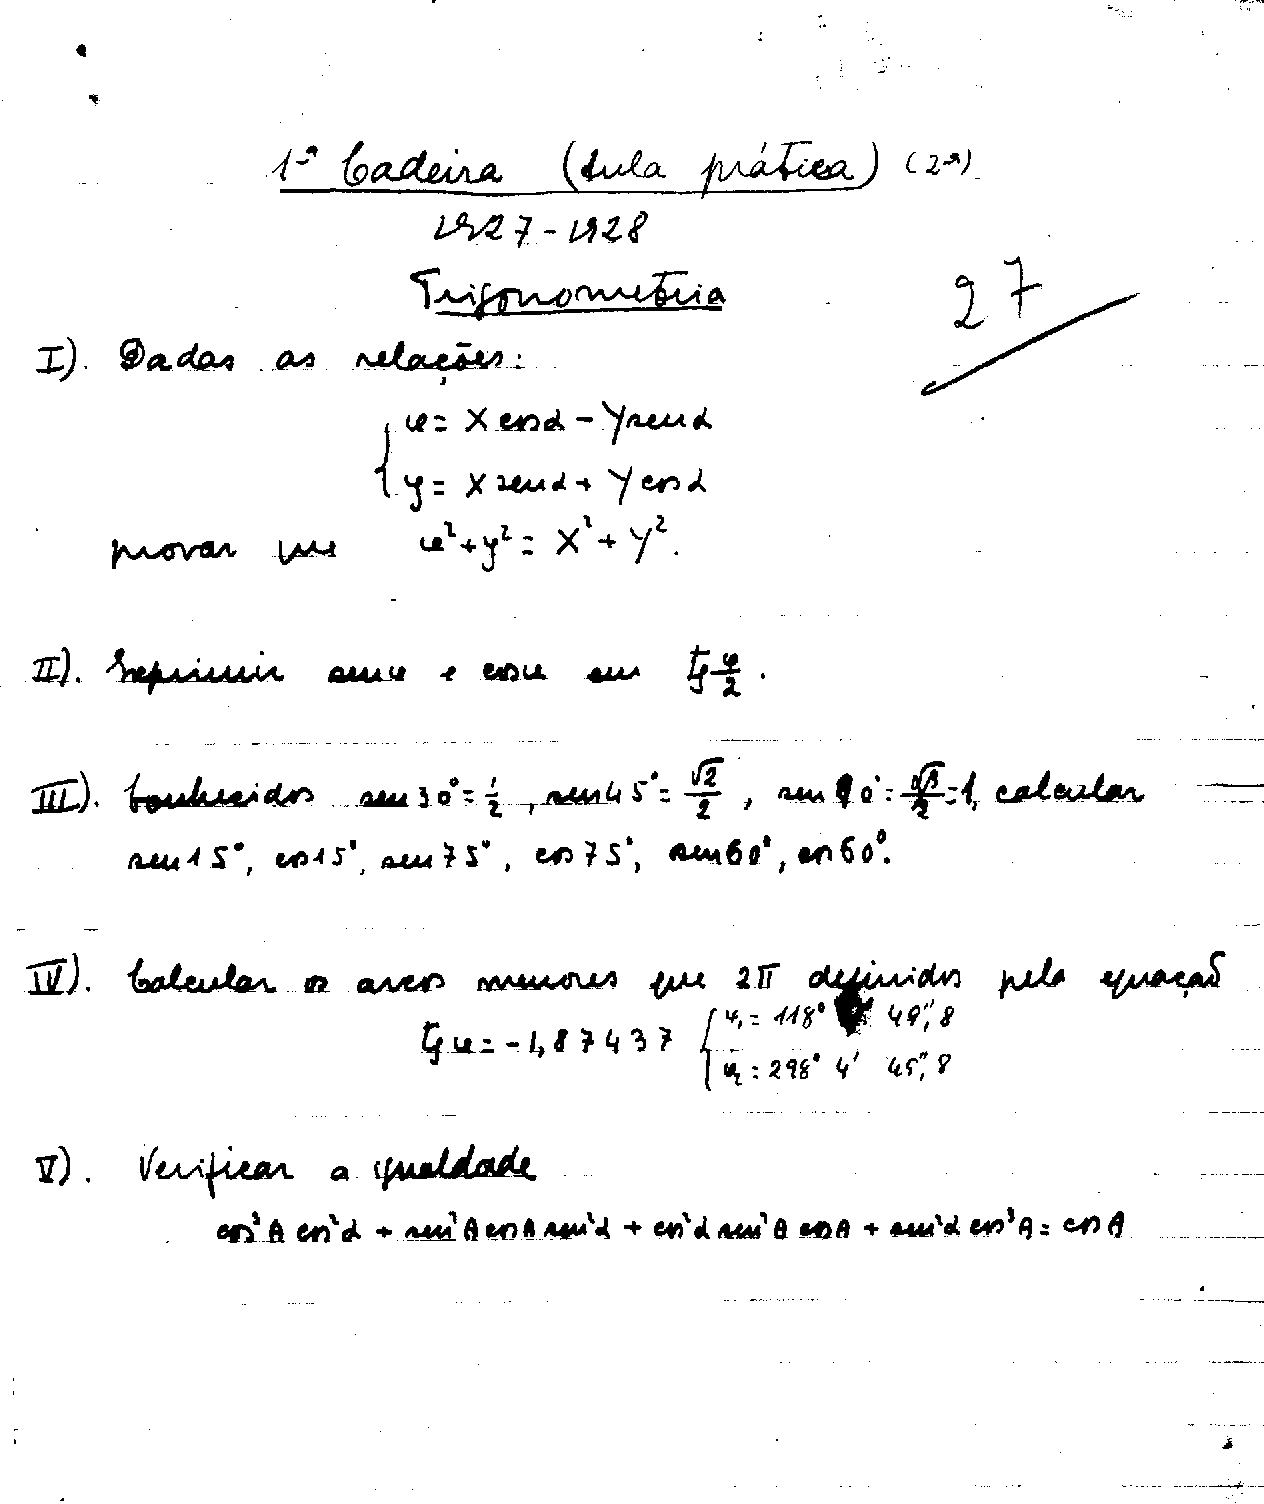 1ª Cadeira (Aula prática) (2ª)
1927-1928
Trigonometria
27
I). Dadas as relações:
x = X cos α - Y sen α
y = X sen α + Y cos α
provar que x² + y² = X² + Y².
II). Exprimir sen x e cos x em tg x/2.
III). Conhecidos sen 30° = 1/2, sen 45° = √2/2, sen 90° = 1, calcular
sen 15°, cos 15°, sen 75°, cos 75°, sen 60°, cos 60°.
IV). Calcular os arcos menores que 2π definidos pela equação
tg x = -1,87437 { x₁ = 118° 49",8
x₂ = 298° 4' 45",8
V). Verificar a igualdade
cos³A cos²α + sen²A cos A sen²α + cos²α sen²A cos A + sen²α cos³A = cos A